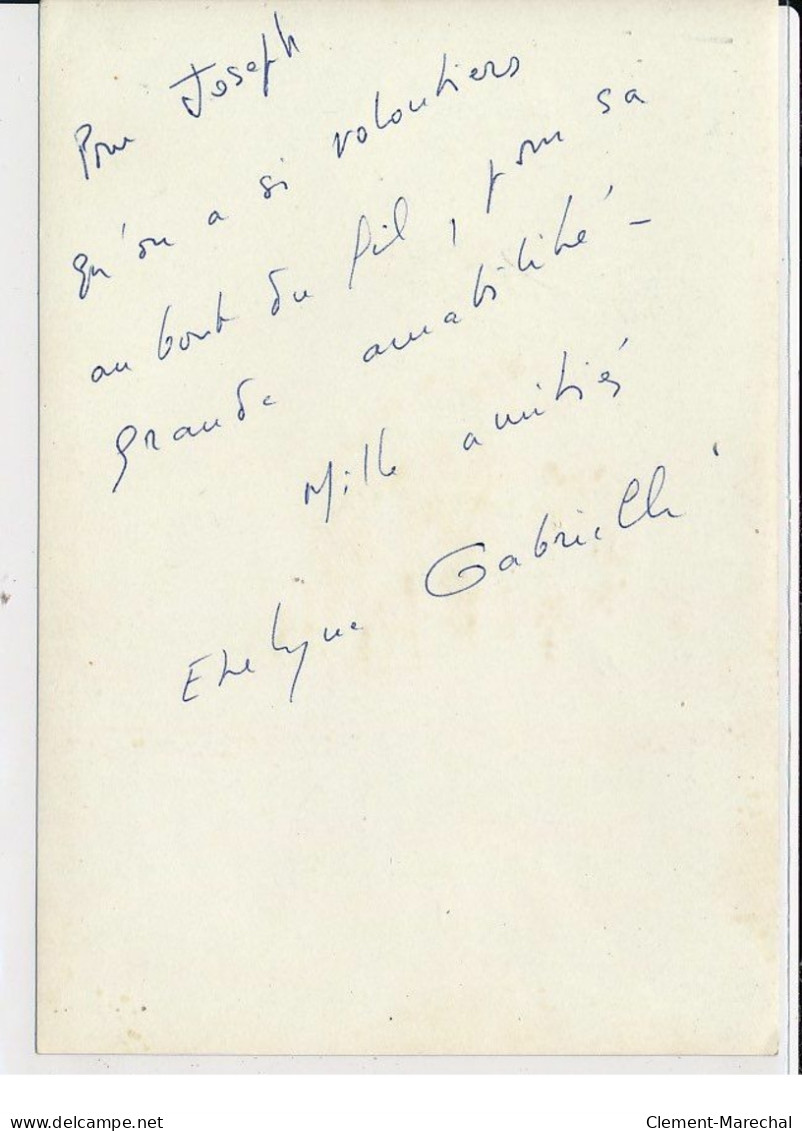 Pour Joseph
qu'on a si volontiers
au bout du fil, pour sa
grande amabilité -
Mille amitiés
Evelyne Gabrielli
delcampe.net
Clement-Marechal